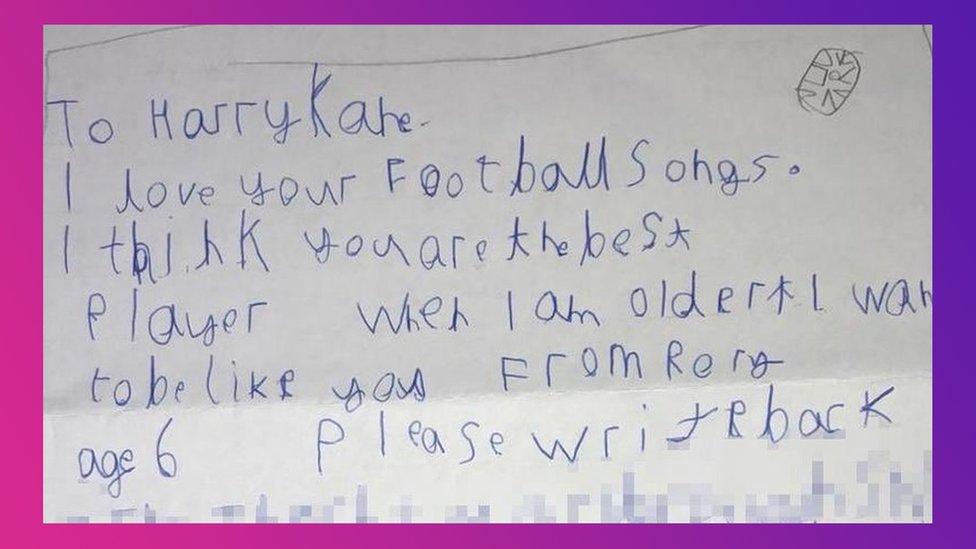 To Harry Kane.
I love your Football Songs.
I think you are the best
Player when I am older I wan
to be like you From Rory
age 6 Please write back